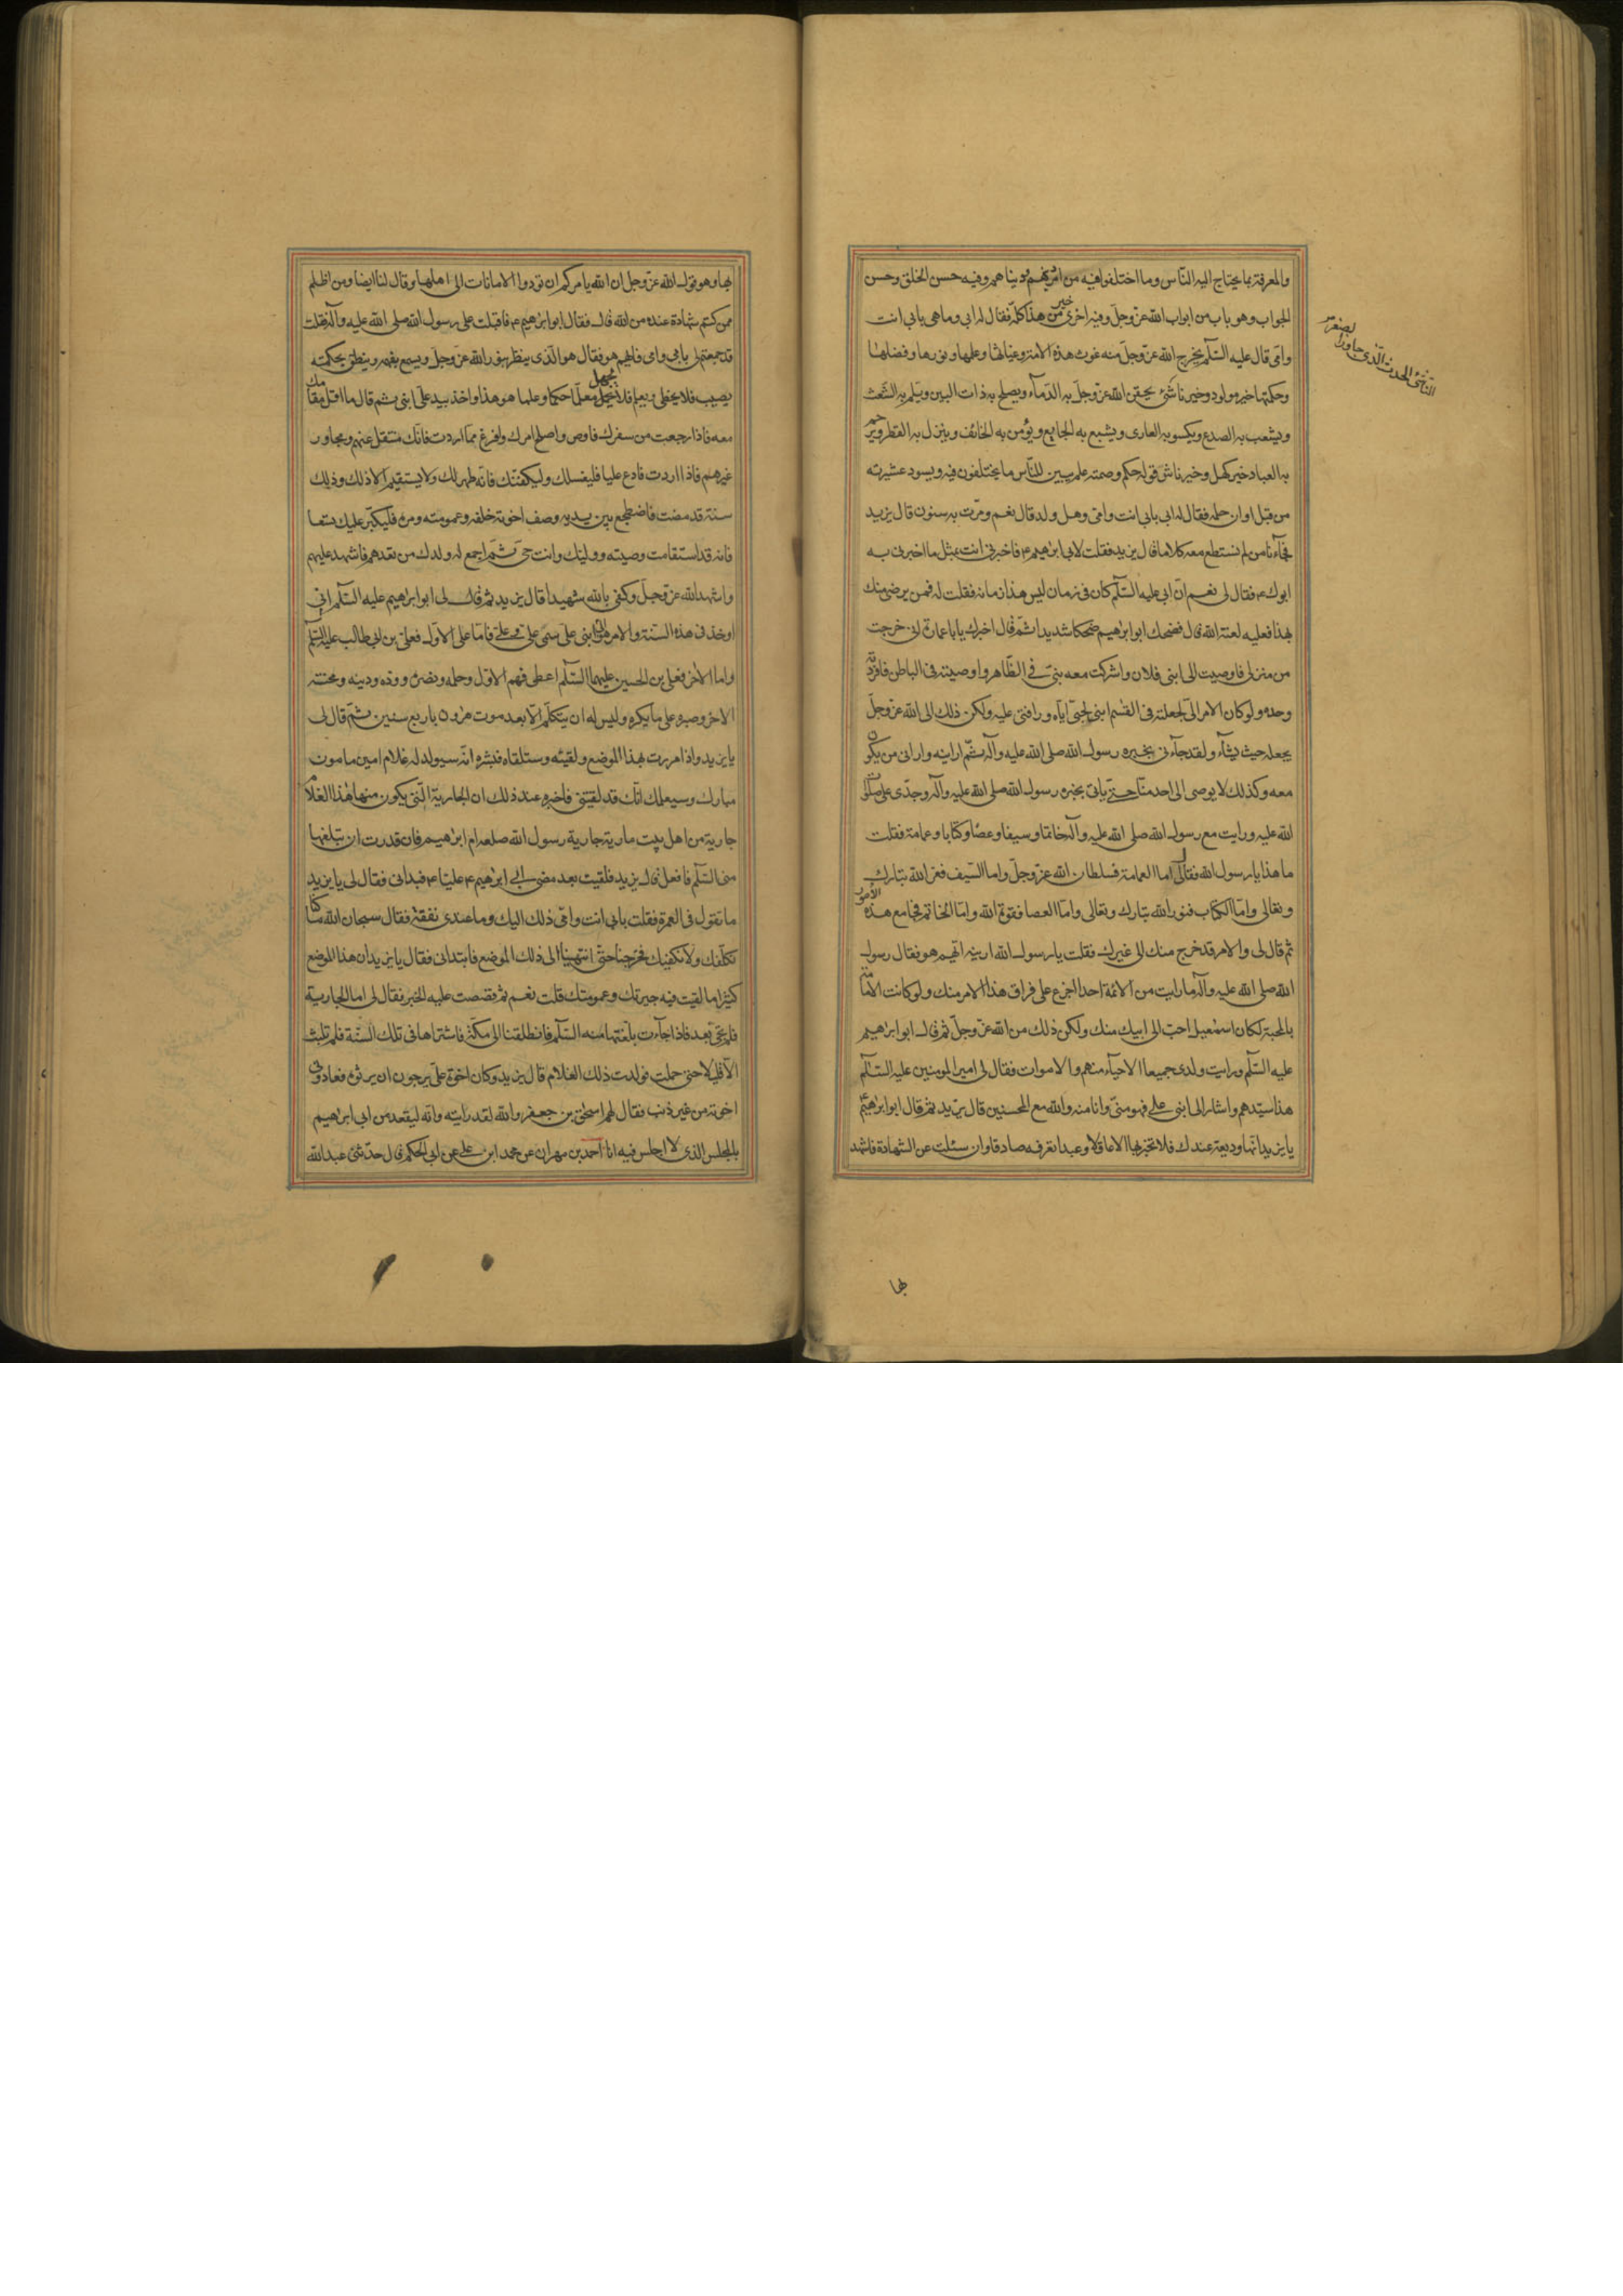 والمعرفة بما يحتاج اليه الناس وما اختلفوا فيه من امر دينهم ودنياهم وفيه حسن الخلق وحسن
الجواب وهو باب من ابواب الله عز وجل وفيه اخرى خير من هذا كله فقال له ابى وما هى بابى انت
وامى قال عليه السلم يخرج الله عز وجل منه غوث هذه الامة وغياثها وعلمها ونورها وفضلها
وحكمتها خير مولود وخير ناشئ يحقن الله عز وجل به الدماء ويصلح به ذات البين ويلم به الشعث
ويشعب به الصدع ويكسو به العارى ويشبع به الجايع ويؤمن به الخائف وينزل به القطر ويرحم
به العباد خير كهل وخير ناش قوله حكم وصمته علم يبين للناس ما يختلفون فيه ويسود عشيرته
من قبل اوان حلمه فقال له ابى بابى انت وامى وهل ولد قال نعم ومرت به سنون قال يزيد
فجاءنا من لم نستطع معه كلاما قال يزيد فقلت لابى ابرهيم ع فاخبرنى انت بمثل ما اخبرنى به
ابوك ع فقال لى نعم ان ابى عليه السلم كان فى زمان ليس هذا زمانه فقلت له فمن يرضى منك
بهذا فعليه لعنة الله قال فضحك ابو ابرهيم ضحكا شديدا ثم قال اخبرك يا با عمارة انى خرجت
من منزلى فاوصيت الى ابنى فلان واشركت معه بنى فى الظاهر واوصيته فى الباطن فافردته
وحده ولو كان الامر الى لجعلته فى القسم ابنى لحبى اياه ورافتى عليه ولكن ذلك الى الله عز وجل
يجعله حيث يشاء ولقد جاءنى بخبره رسول الله صلى الله عليه وآله ثم ارانيه وارانى من يكون
معه وكذلك لا يوصى الى احد منا حتى ياتى بخبره رسول الله صلى الله عليه وآله وجدى على صلوات
الله عليه ورايت مع رسول الله صلى الله عليه وآله خاتما وسيفا وعصا وكتابا وعمامة فقلت
ما هذا يا رسول الله فقال لى اما العمامة فسلطان الله عز وجل واما السيف فعز الله تبارك
وتعالى واما الكتاب فنور الله تبارك وتعالى واما العصا فقوة الله واما الخاتم فجامع هذه الامور
ثم قال لى والامر قد خرج منك الى غيرك فقلت يا رسول الله ارينه ايهم هو فقال رسول
الله صلى الله عليه وآله ما رايت من الائمة احدا اجزع على فراق هذا الامر منك ولو كانت الامامة
بالمحبة لكان اسمعيل احب الى ابيك منك ولكن ذلك من الله عز وجل ثم قال ابو ابرهيم
عليه السلم ورايت ولدى جميعا الاحياء منهم والاموات فقال لى امير المومنين عليه السلم
هذا سيدهم واشار الى ابنى على فهو منى وانا منه والله مع المحسنين قال يزيد ثم قال ابو ابرهيم
يا يزيد انها وديعة عندك فلا تخبر بها الا عاقلا وعبدا تعرفه صادقا وان سئلت عن الشهادة فاشهد
بها
بها وهو قول الله عز وجل ان الله يامركم ان تودوا الامانات الى اهلها وقال لنا ايضا ومن اظلم
ممن كتم شهادة عنده من الله قال فقال ابو ابرهيم ع فاقبلت على رسول الله صلى الله عليه وآله فقلت
قد جمعتهم لى بابى وامى فايهم هو فقال هو الذى ينظر بنور الله عز وجل ويسمع بفهمه وينطق بحكمته
يصيب فلا يخطى ويعلم فلا يجهل معلما حكما وعلما هو هذا واخذ بيد على ابنى ثم قال ما اقل مقامك
معه فاذا رجعت من سفرك فاوص واصلح امرك وافرغ مما اردت فانك منتقل عنهم ومجاور
غيرهم فاذا اردت فادع عليا فليغسلك وليكفنك فانه طهر لك ولا يستقيم الا ذلك وذلك
سنة قد مضت فاضطجع بين يديه وصف اخوته خلفه وعمومته ومره فليكبر عليك تسعا
فانه قد استقامت وصيته ووليك وانت حى ثم اجمع له ولدك من بعدهم فاشهد عليهم
واشهد الله عز وجل وكفى بالله شهيدا قال يزيد ثم قال لى ابو ابرهيم عليه السلم انى
اوخذ فى هذه السنة والامر هو الى ابنى على سمى على وعلى فاما على الاول فعلى بن ابى طالب عليه السلم
واما الاخر فعلى بن الحسين عليهما السلم اعطى فهم الاول وحلمه ونصره ووده ودينه ومحنته
الاخر وصبره على ما يكره وليس له ان يتكلم الا بعد موت هرون باربع سنين ثم قال لى
يا يزيد واذا مررت بهذا الموضع ولقيته وستلقاه فبشره انه سيولد له غلام امين مامون
مبارك وسيعلمك انك قد لقيتنى فاخبره عند ذلك ان الجارية التى يكون منها هذا الغلام
جارية من اهل بيت مارية جارية رسول الله صلعم ام ابرهيم فان قدرت ان تبلغها
منى السلم فافعل قال يزيد فلقيت بعد مضى ابى ابرهيم ع عليا ع فبدانى فقال لى يا يزيد
ما تقول فى العمرة فقلت بابى انت وامى ذلك اليك وما عندى نفقة فقال سبحان الله ما كنا
نكلفك ولا نكفيك فخرجنا حتى انتهينا الى ذلك الموضع فابتدانى فقال يا يزيد ان هذا الموضع
كثيرا ما لقيت فيه جيرتك وعمومتك قلت نعم ثم قصصت عليه الخبر فقال لى اما الجارية
فلم تجئ بعد فاذا جاءت بلغتها منه السلم فانطلقنا الى مكة فاشتراها فى تلك السنة فلم تلبث
الا قليلا حتى حملت فولدت ذلك الغلام قال يزيد وكان اخوة على يرجون ان يرثوه فعادونى
اخوته من غير ذنب فقال لهم اسحق بن جعفر والله لقد رايته وانه ليقعد من ابى ابرهيم
بالمجلس الذى لا اجلس فيه انا احمد بن مهران عن محمد ابن على عن ابى الحكم قال حدثنى عبد الله